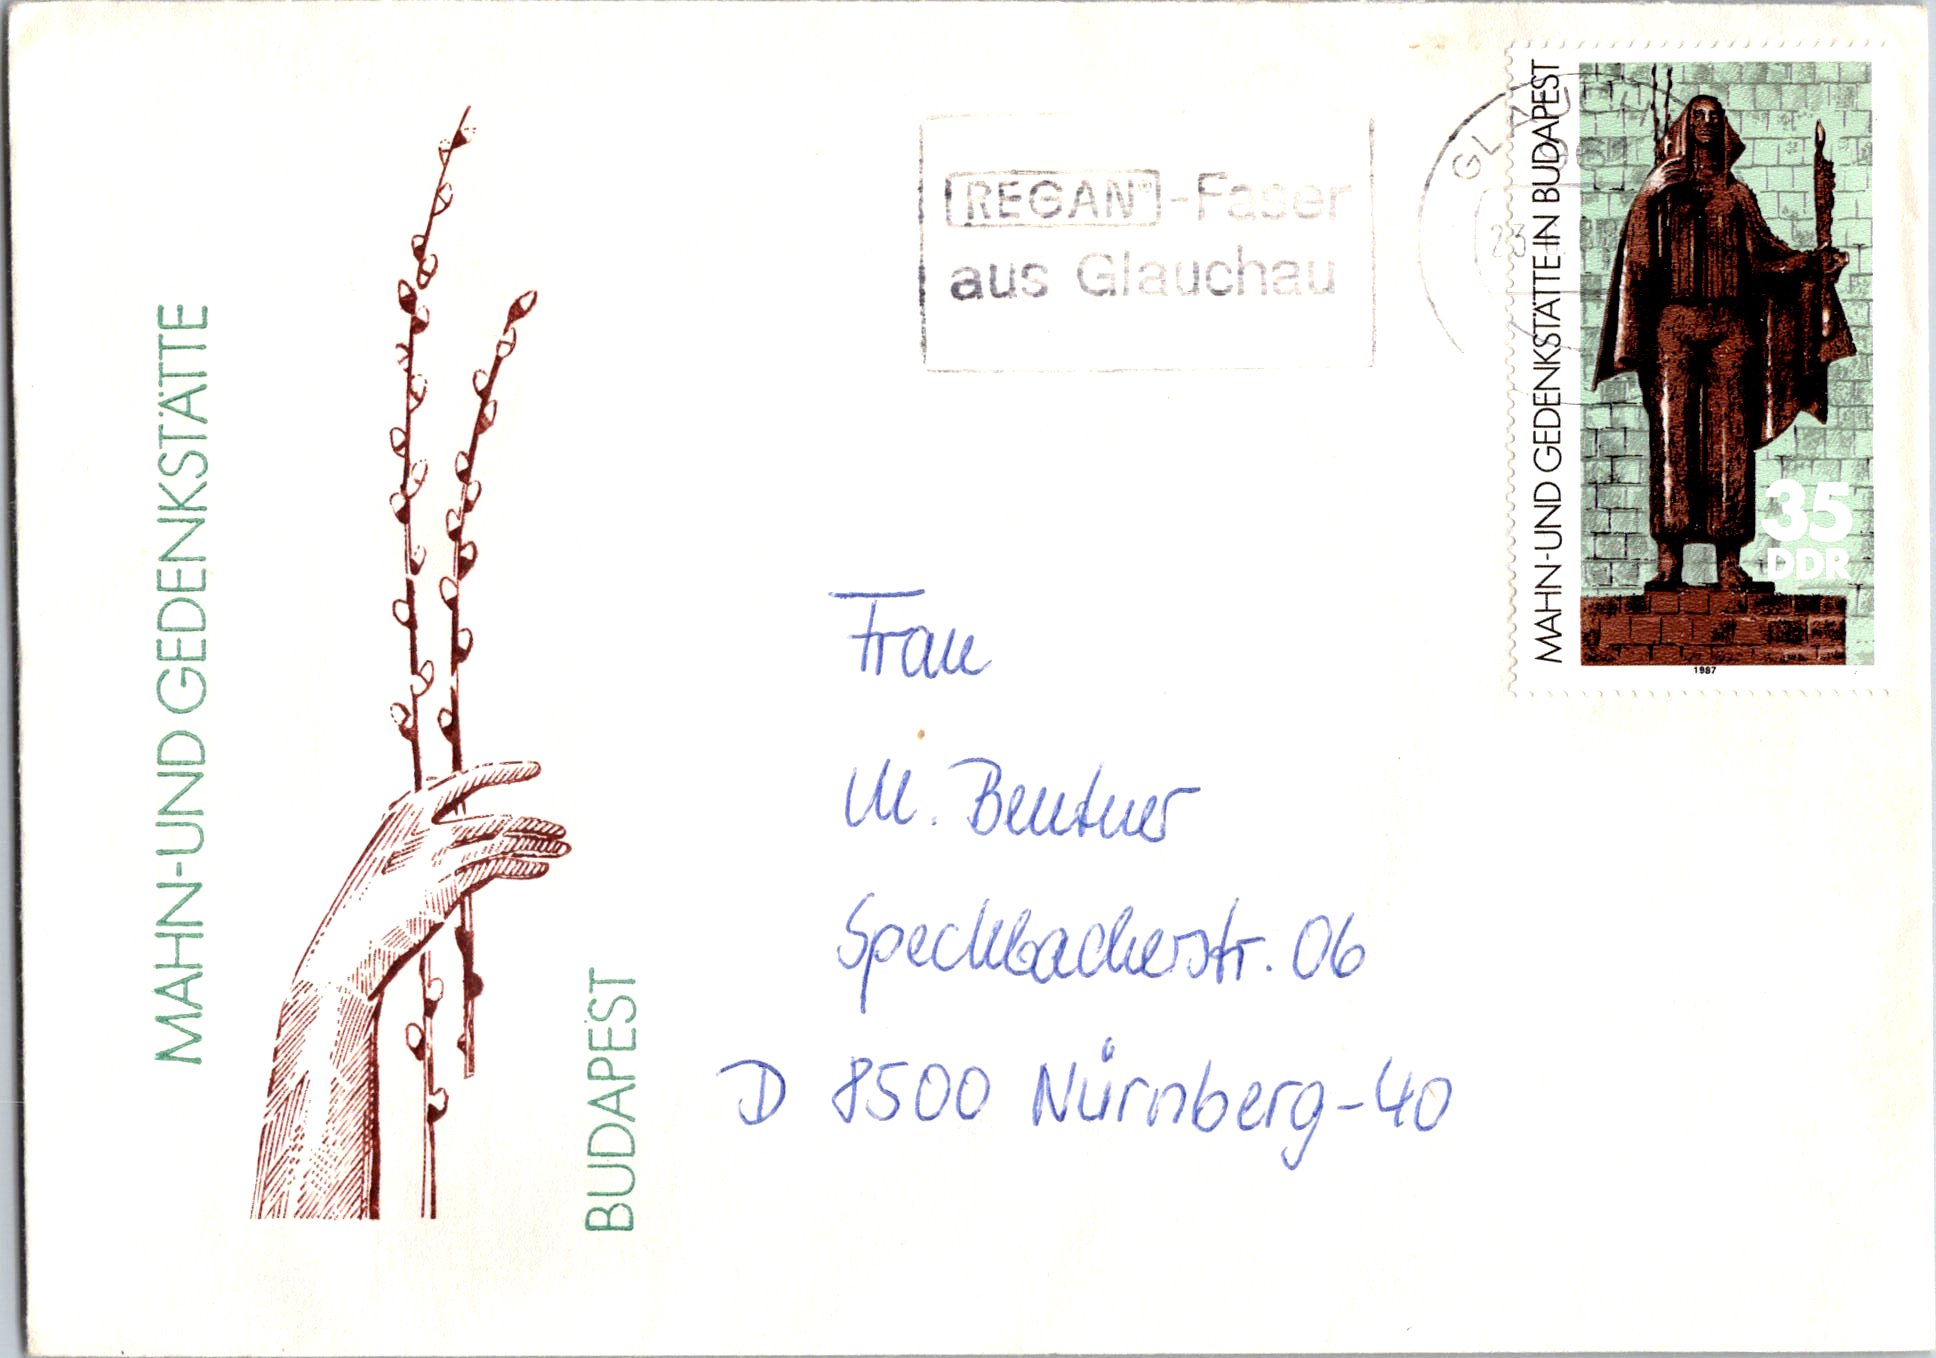 MAHN-UND GEDENKSTÄTTE
BUDAPEST
REGAN®-Faser
aus Glauchau
GLAUCHAU
23
MAHN-UND GEDENKSTÄTTE IN BUDAPEST
35
DDR
1987
Frau
M. Bentner
Speckbacherstr. 06
D 8500 Nürnberg-40